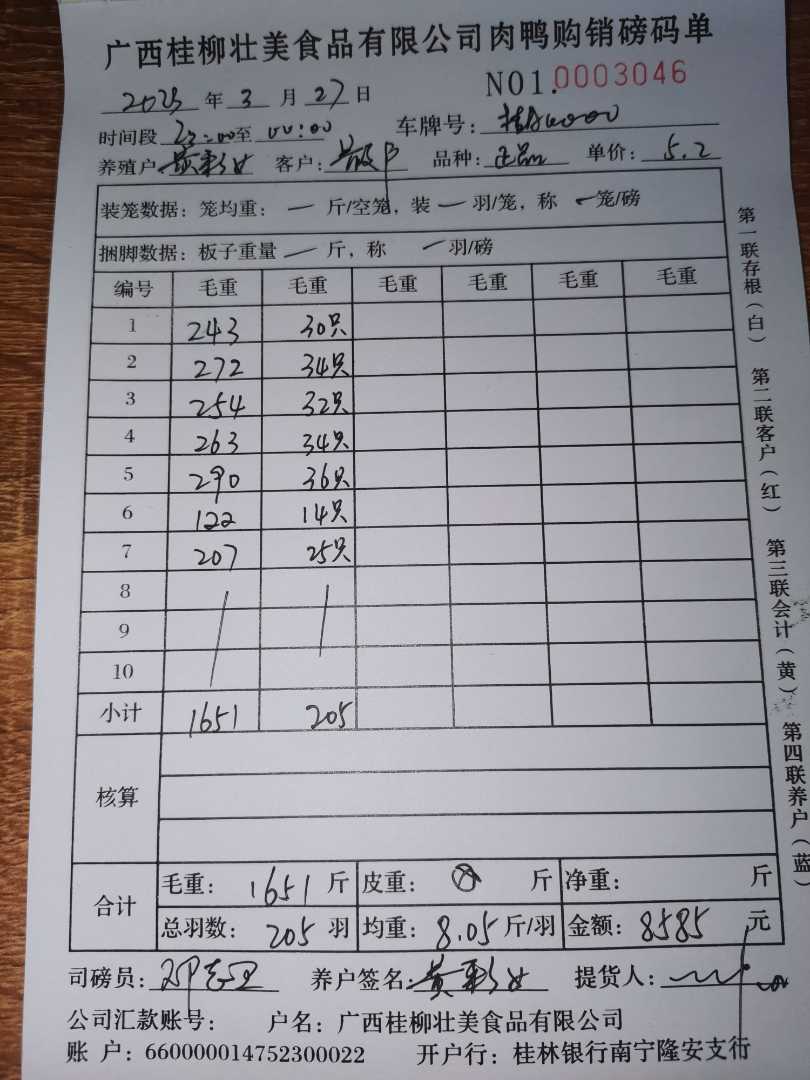 广西桂柳壮美食品有限公司肉鸭购销磅码单
NO1.0003046
2023年3月27日
时间段 23:00至00:00 车牌号:
养殖户 黄彩女 客户: 散户 品种: 正品 单价: 5.2
装笼数据: 笼均重: 一 斤/空笼, 装 一 羽/笼, 称 一 笼/磅
捆脚数据: 板子重量 一 斤, 称 一 羽/磅
编号 毛重 毛重 毛重 毛重 毛重 毛重
1 243 30只
2 272 34只
3 254 32只
4 263 34只
5 290 36只
6 122 14只
7 207 25只
8
9
10
小计 1651 205
核算
合计 毛重: 1651 斤 皮重: 斤 净重: 斤
总羽数: 205 羽 均重: 8.05 斤/羽 金额: 8585 元
司磅员: 养户签名: 黄彩女 提货人:
公司汇款账号: 户名: 广西桂柳壮美食品有限公司
账 户: 660000014752300022 开户行: 桂林银行南宁隆安支行
第一联存根(白) 第二联客户(红) 第三联会计(黄) 第四联养户(蓝)